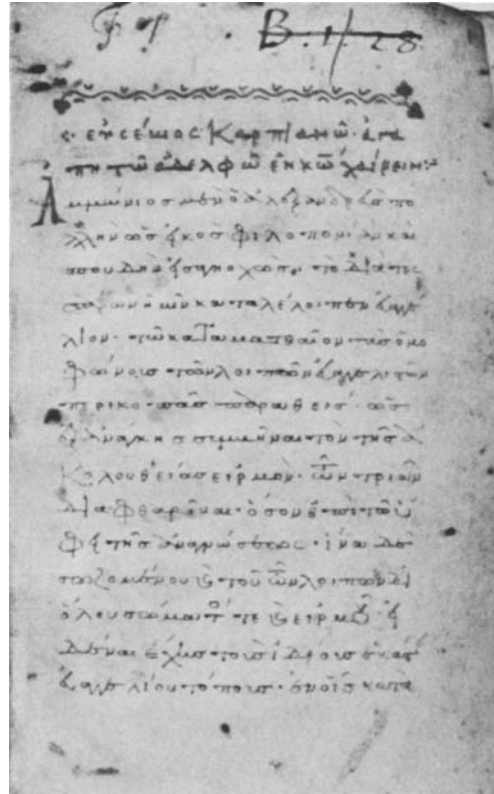 F 1 B. 1/28
εὐσέβιος Καρπιανῶ ἀγα
πητῶ ἀδελφῶ ἐν κω χαίρειν:
Ἀμμώνιος μὲν ὁ ἀλεξανδρεὺς πο
λλὴν ὡς εἰκὸς φιλοπονίαν καὶ
σπουδὴν εἰσηγηοχὼς, τὸ διὰ τες
σάρων ἡμῖν καταλέλοιπεν εὐαγγέ
λιον. τῶ κατὰ ματθαῖον τὰς ὁμο
φώνοις τῶν λοιπῶν εὐαγγελιστῶν
ὡς
ἐξ ἀνάγκης τὸν τῆς ἀ
κολουθείας εἱρμὸν. τῶν τριῶν
διαφθαρῆναι. ὅσον ἐπὶ τῶ ὑ
φει τῆς ἀναγνώσεως. ἵνα δὲ
σωζομένου κ τοῦ τῶν λοιπῶν δι
ὅλου σώματός τε κ εἱρμοῦ εἰ
δέναι ἔχεις τοὺς
εὐαγγελίου τόπους. ἐν οἷς κατα